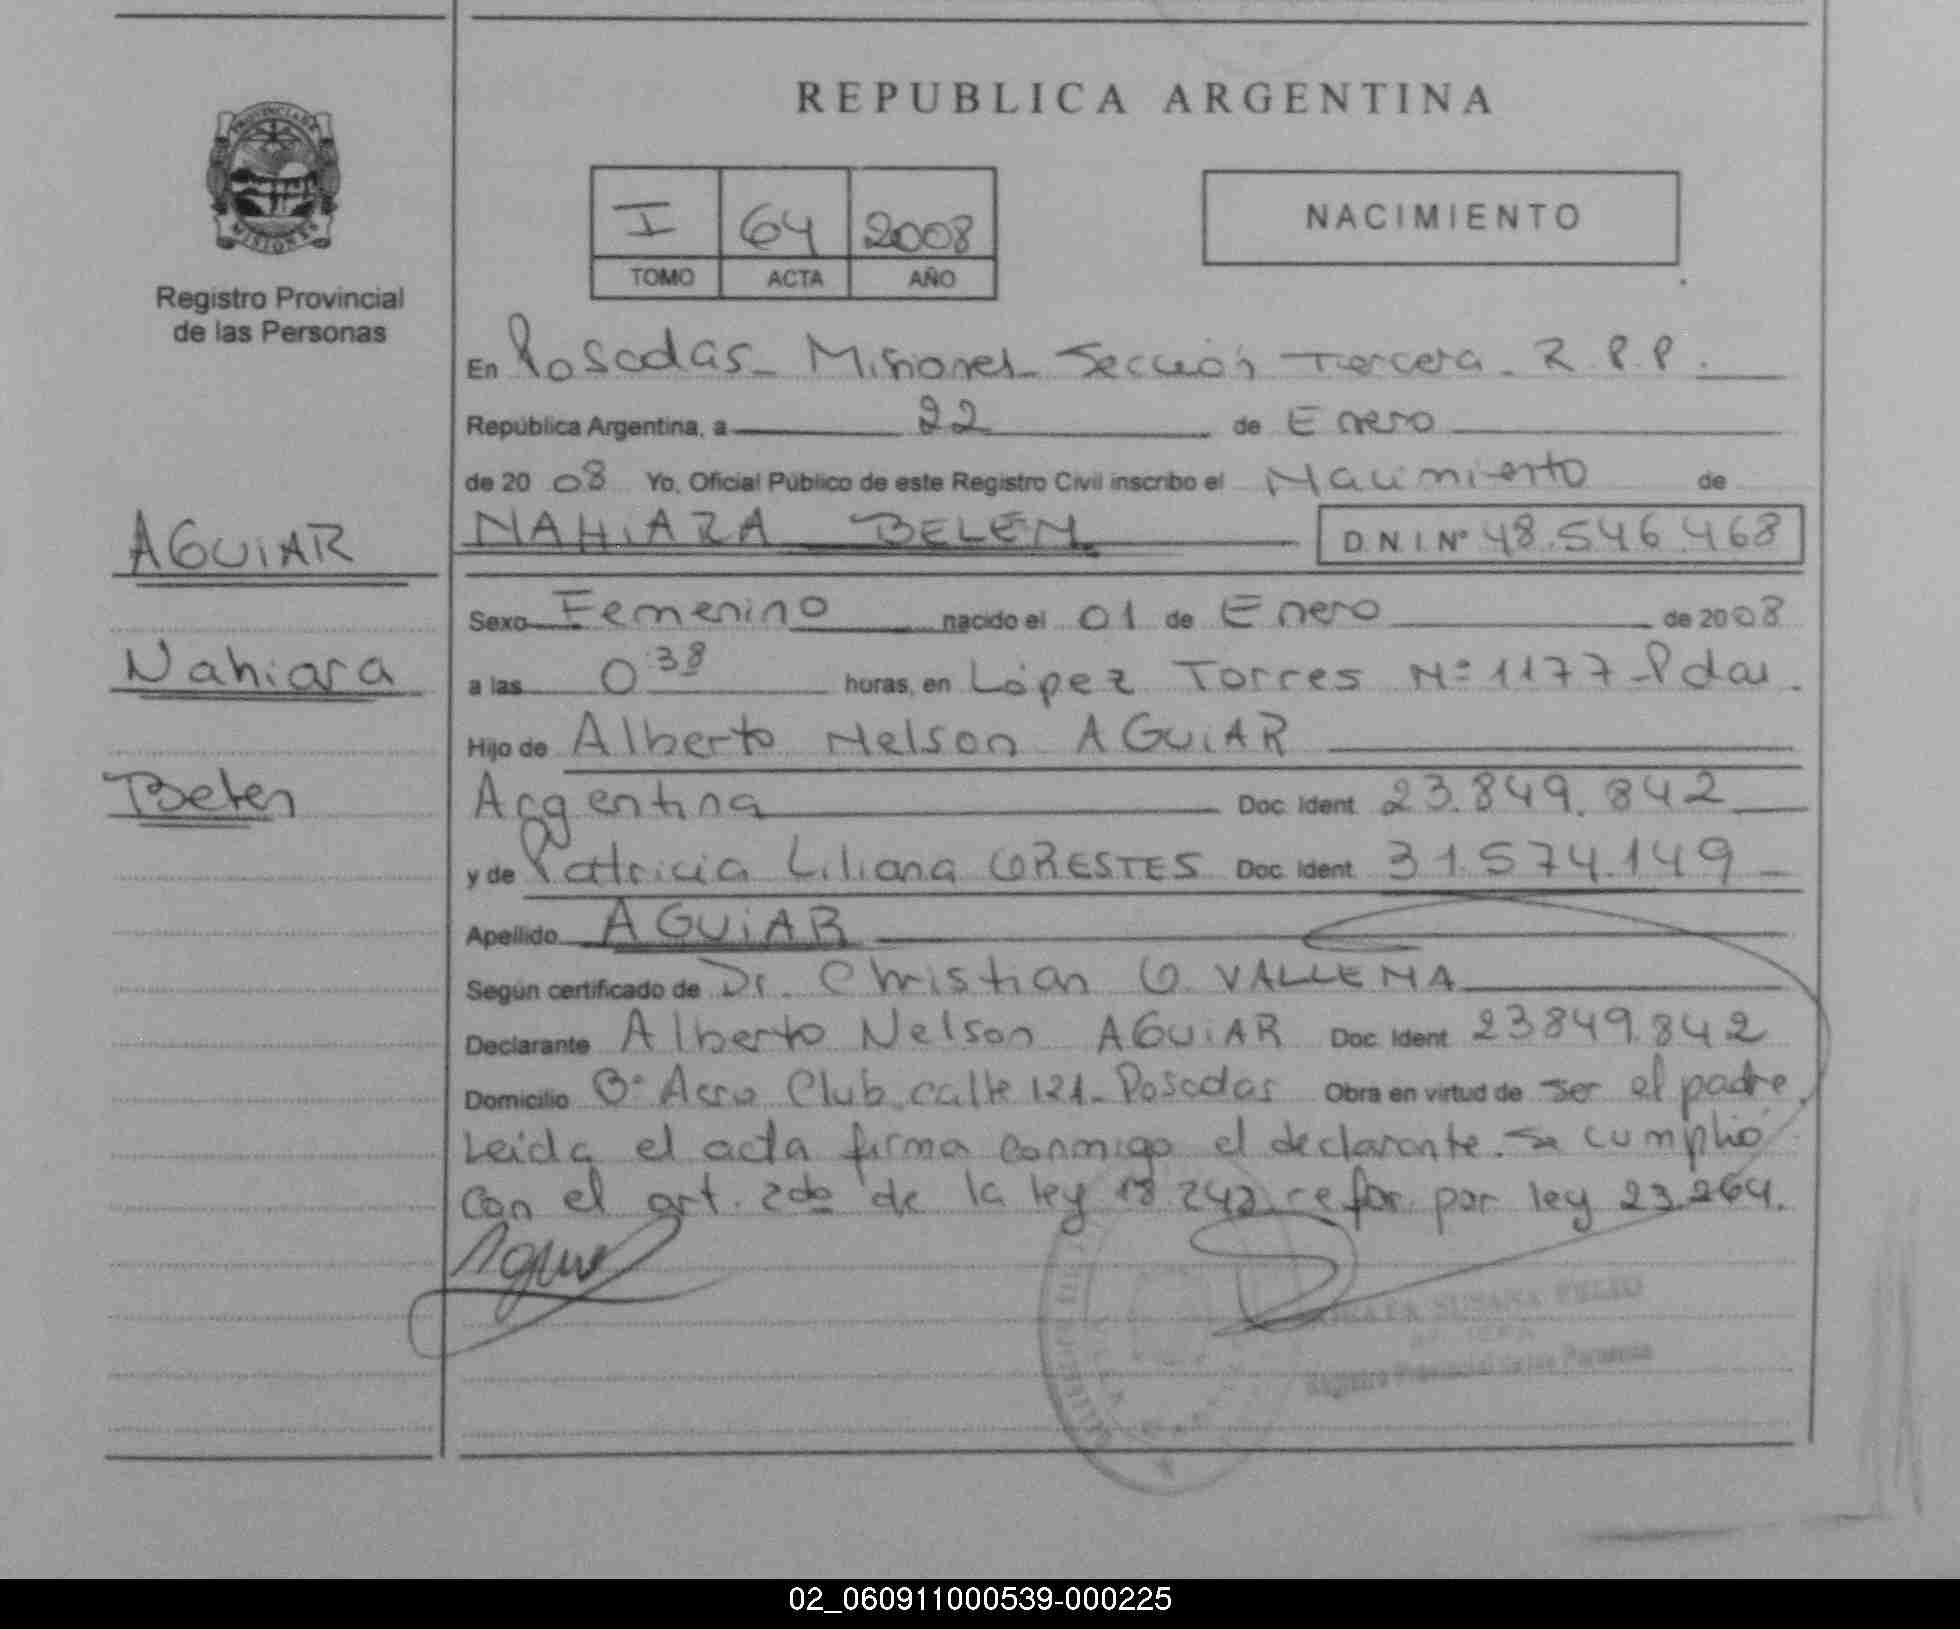 REPUBLICA ARGENTINA
PROVINCIA DE
MISIONES
Registro Provincial
de las Personas
I 64 2008
TOMO ACTA AÑO
NACIMIENTO
En Posadas - Misiones - Sección Tercera - R.P.P.
República Argentina, a 22 de Enero
de 2008 Yo, Oficial Público de este Registro Civil inscribo el Nacimiento de
NAHIARA BELEN D.N.I. Nº 48.546.468
AGUIAR
Nahiara
Belen
Sexo Femenino nacido el 01 de Enero de 2008
a las 0 38 horas, en López Torres Nº 1177 - Pdas.
Hijo de Alberto Nelson AGUIAR
Argentina Doc. Ident. 23.849.842
y de Patricia Liliana ORESTES Doc. Ident. 31.574.149
Apellido AGUIAR
Según certificado de Dr. Christian G. VALLENA
Declarante Alberto Nelson AGUIAR Doc. Ident. 23849.842
Domicilio Bº Aero Club calle 121 - Posadas Obra en virtud de ser el padre.
Leida el acta firma conmigo el declarante. Se cumplió
con el art. 2do de la ley 18.242 refor. por ley 23.264.
SUSANA
Registro Provincial de las Personas
02_060911000539-000225